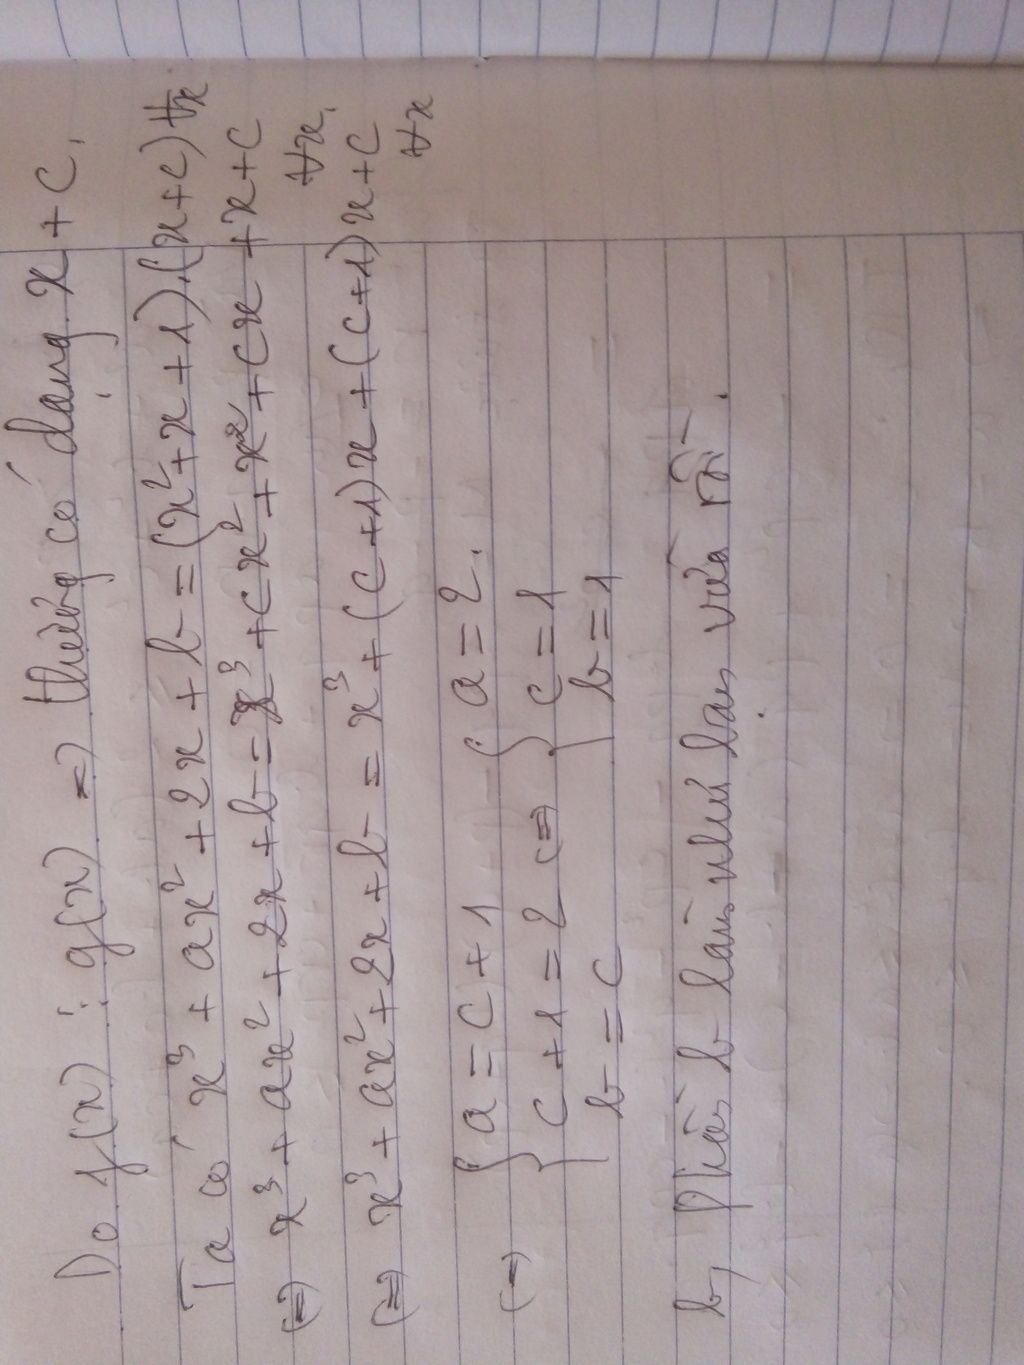 Do f(x) ⋮ g(x) => thương có dạng x + c,
Ta có x³ + ax² + 2x + b = (x² + x + 1).(x+c) ∀x.
(=) x³ + ax² + 2x + b = x³ + cx² + x² + cx + x + c
∀x,
(=) x³ + ax² + 2x + b = x³ + (c+1)x + (c+1)x + c
∀x
(=) { a = c + 1 { a = 2.
c + 1 = 2 (=) c = 1
b = c b = 1
b, Phần b làm như bài vừa rồi.